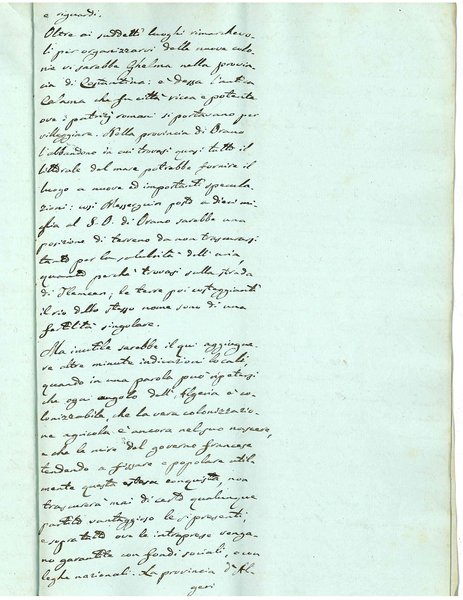 e riguardi.
Oltre ai suddetti luoghi rimarchevo-
li per organizzarvi delle nuove colo-
nie vi sarebbe Ghelma nella provin-
cia di Costantina: è dessa l'antica
Calama che fu città ricca e potente
ove i patrizj romani si portavano per
villeggiare. Nella provincia di Orano
l'abbandono in cui trovasi quasi tutto il
littorale del mare potrebbe fornire il
luogo a nuove ed importanti specula-
zioni: così Messerguin posto a dieci mi-
glia al S. O. di Orano sarebbe una
posizione di terreno da non trascurarsi
tanto per la salubrità dell'aria,
quanto perchè trovasi sulla strada
di Tlemcen, le terre poi costeggianti
il rio dello stesso nome sono di una
fertilità singolare.
Ma inutile sarebbe il qui aggiunge-
re altre minute indicazioni locali,
quando in una parola può ripetersi
che ogni angolo dell'Algeria è co-
lonizzabile che la vera colonizzazio-
ne agricola è ancora nel suo nascere,
e che le mire del governo francese
tendendo a fissare e popolare util-
mente questa estesa conquista, non
trascurerà mai di certo qualunque
partito vantaggioso le si presenti,
e sopratutto ove le intraprese venga-
no garantite con fondi sociali, e con
leghe nazionali. La provincia d'Al-
geri